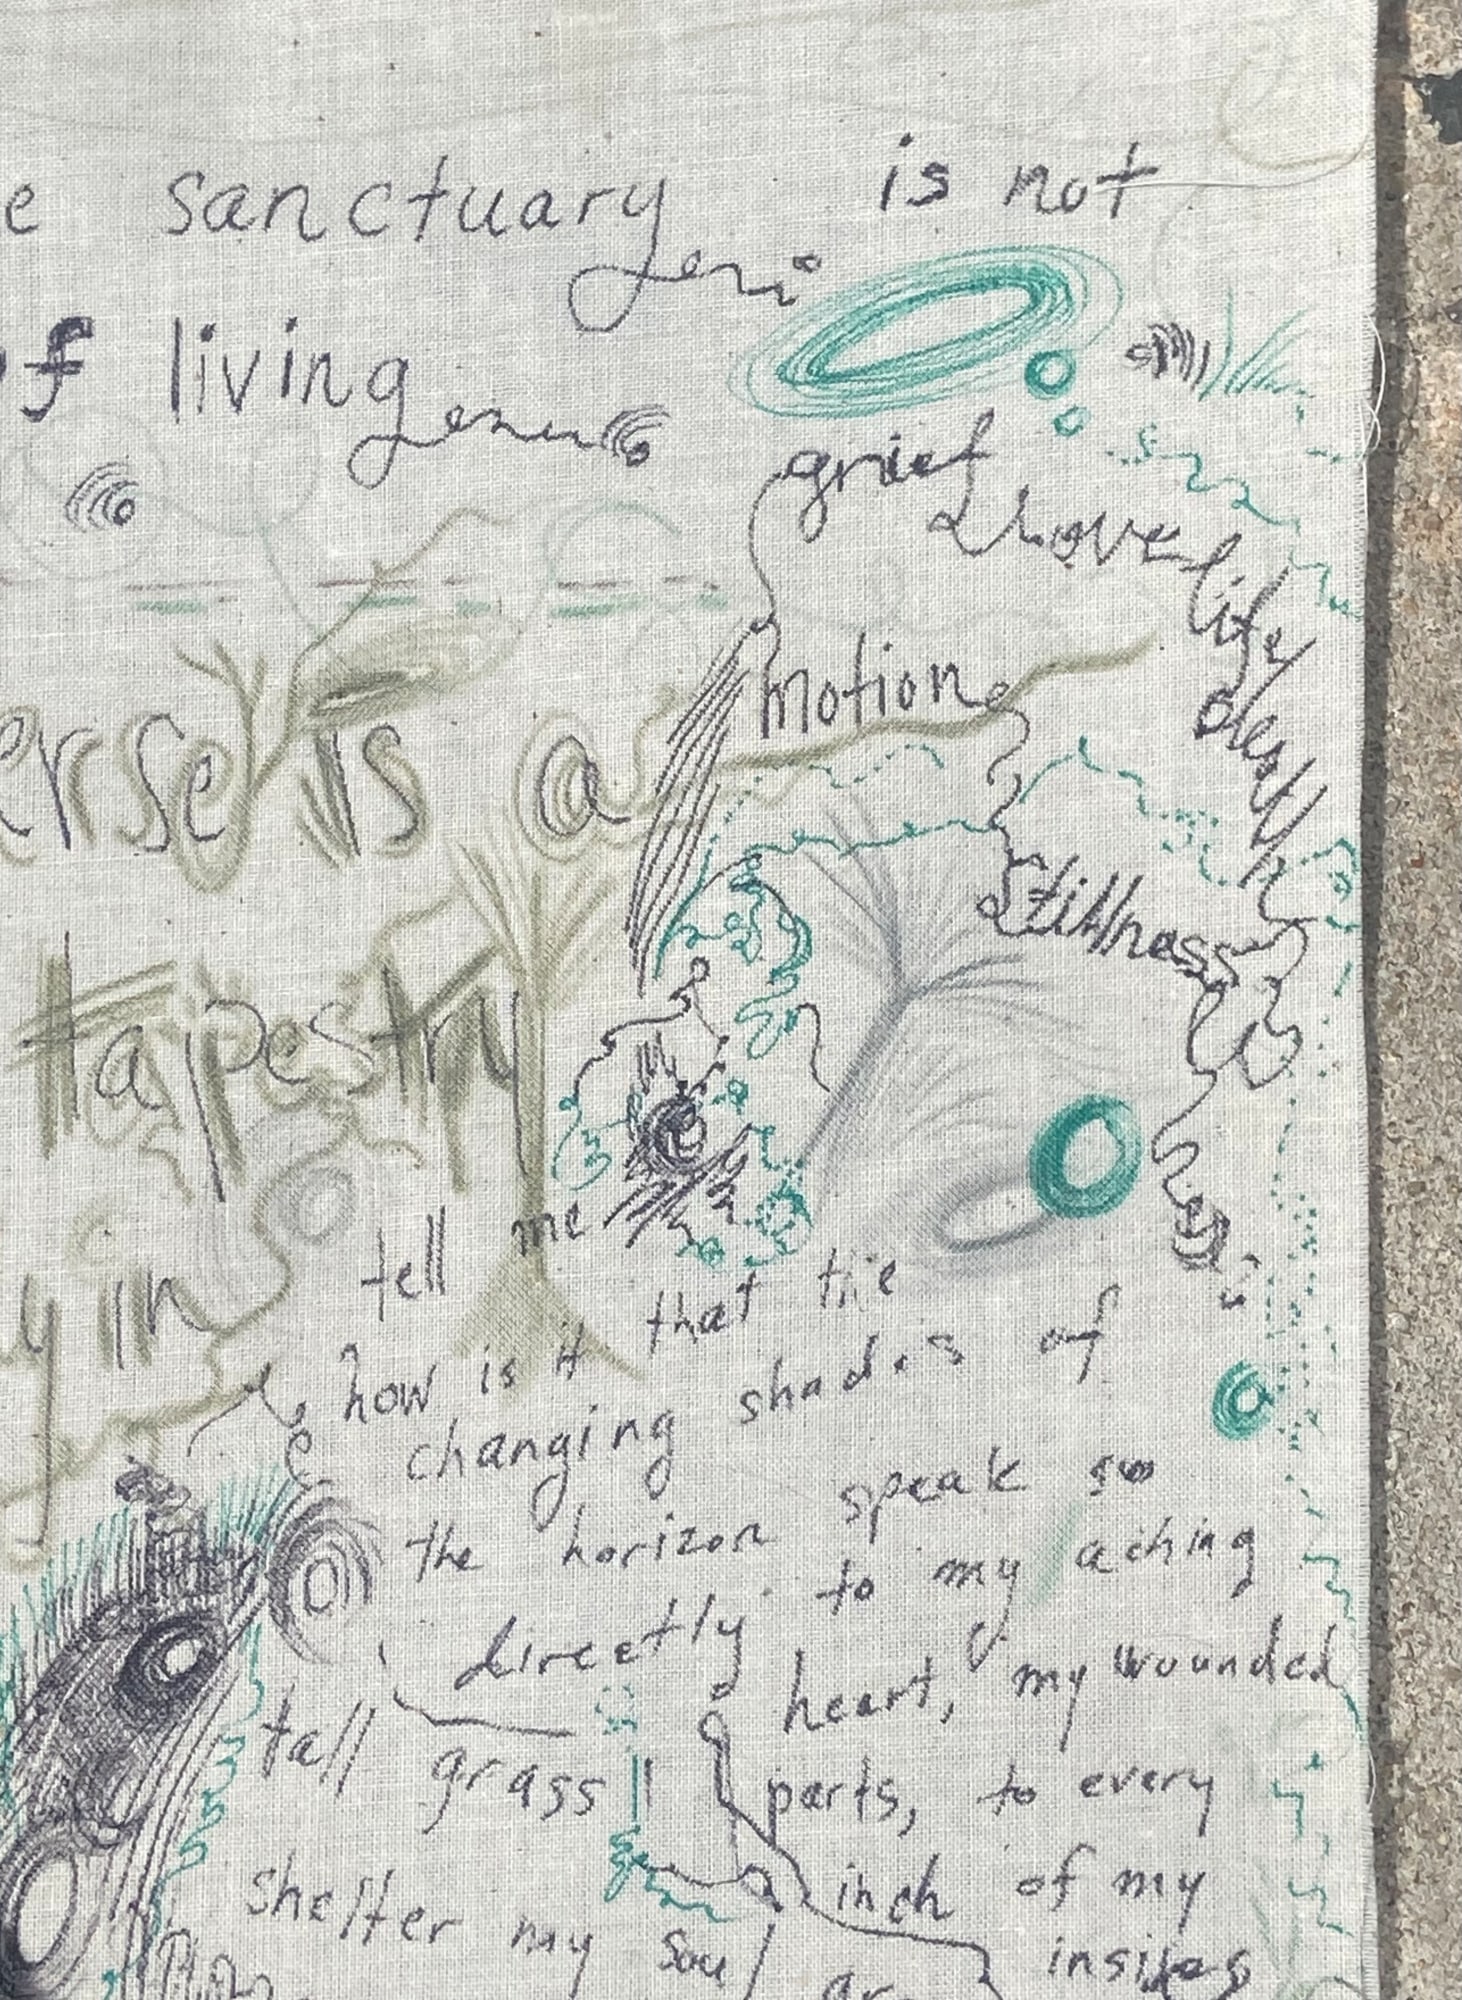 sanctuary is not
of living
grief
love life
death
motion
is a
stillness
tapestry
in
tell me
how is it that the
changing shades of
the horizon speak so
directly to my aching
heart, my wounded
tall grass parts, to every
shelter my soul inch of my
insides